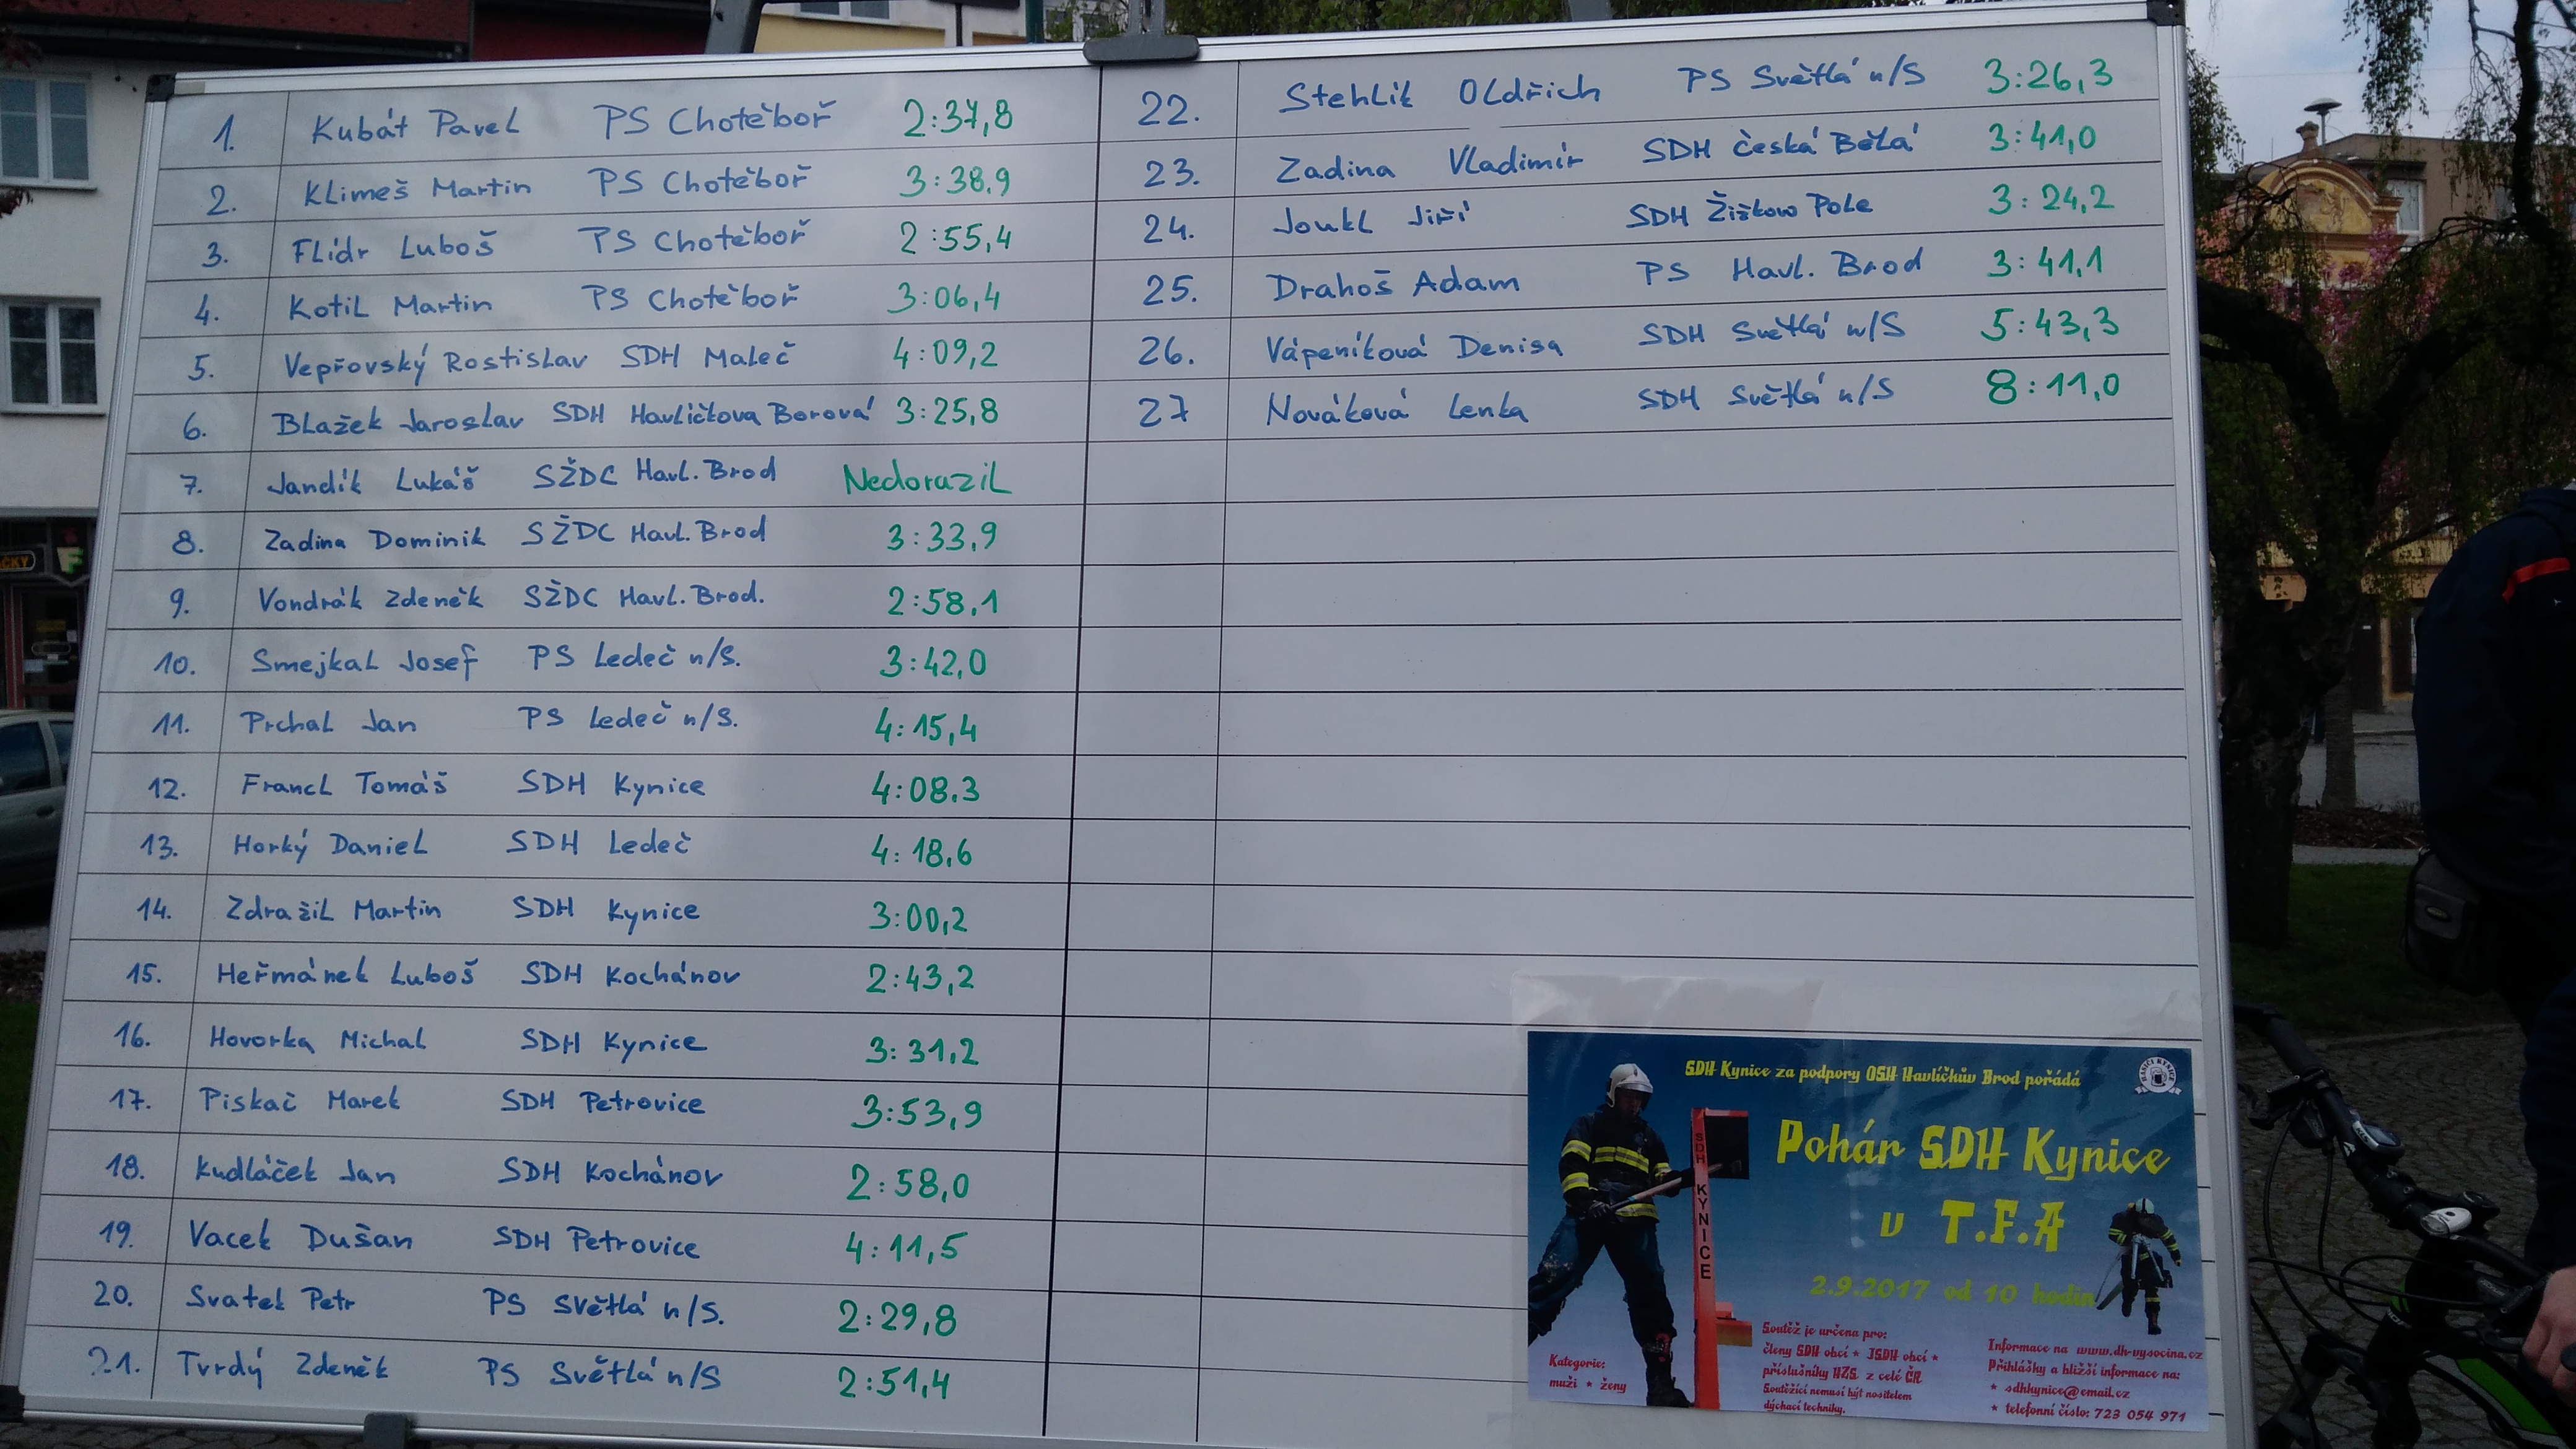 1. Kubát Pavel PS Chotěboř 2:37,8
2. Klimeš Martin PS Chotěboř 3:38,9
3. Flídr Luboš PS Chotěboř 2:55,4
4. Kotil Martin PS Chotěboř 3:06,4
5. Vepřovský Rostislav SDH Maleč 4:09,2
6. Blažek Jaroslav SDH Havlíčkova Borová 3:25,8
7. Jandík Lukáš SŽDC Havl. Brod Nedorazil
8. Zadina Dominik SŽDC Havl. Brod 3:33,9
9. Vondrák Zdeněk SŽDC Havl. Brod. 2:58,1
10. Smejkal Josef PS Ledeč n/S. 3:42,0
11. Prchal Jan PS Ledeč n/S. 4:15,4
12. Francl Tomáš SDH Kynice 4:08,3
13. Horký Daniel SDH Ledeč 4:18,6
14. Zdražil Martin SDH Kynice 3:00,2
15. Heřmánek Luboš SDH Kochánov 2:43,2
16. Hovorka Michal SDH Kynice 3:31,2
17. Piskač Marek SDH Petrovice 3:53,9
18. Kudláček Jan SDH Kochánov 2:58,0
19. Vacek Dušan SDH Petrovice 4:11,5
20. Svatek Petr PS Světlá n/S. 2:29,8
21. Tvrdý Zdeněk PS Světlá n/S 2:51,4
22. Stehlík Oldřich PS Světlá n/S 3:26,3
23. Zadina Vladimír SDH Česká Bělá 3:41,0
24. Joukl Jiří SDH Žižkovo Pole 3:24,2
25. Drahoš Adam PS Havl. Brod 3:41,1
26. Vápeníková Denisa SDH Světlá n/S 5:43,3
27 Nováková Lenka SDH Světlá n/S 8:11,0
SDH Kynice za podpory OSH Havlíčkův Brod pořádá
Pohár SDH Kynice
v T.F.A
2.9.2017 od 10 hodin
SDH KYNICE
Kategorie:
muži * ženy
Soutěž je určena pro:
členy SDH obcí * JSDH obcí *
příslušníky HZS z celé ČR
Soutěžící nemusí být nositelem
dýchací techniky.
Informace na www.dh-vysocina.cz
Přihlášky a bližší informace na:
* sdhkynice@email.cz
* telefonní číslo: 723 054 971